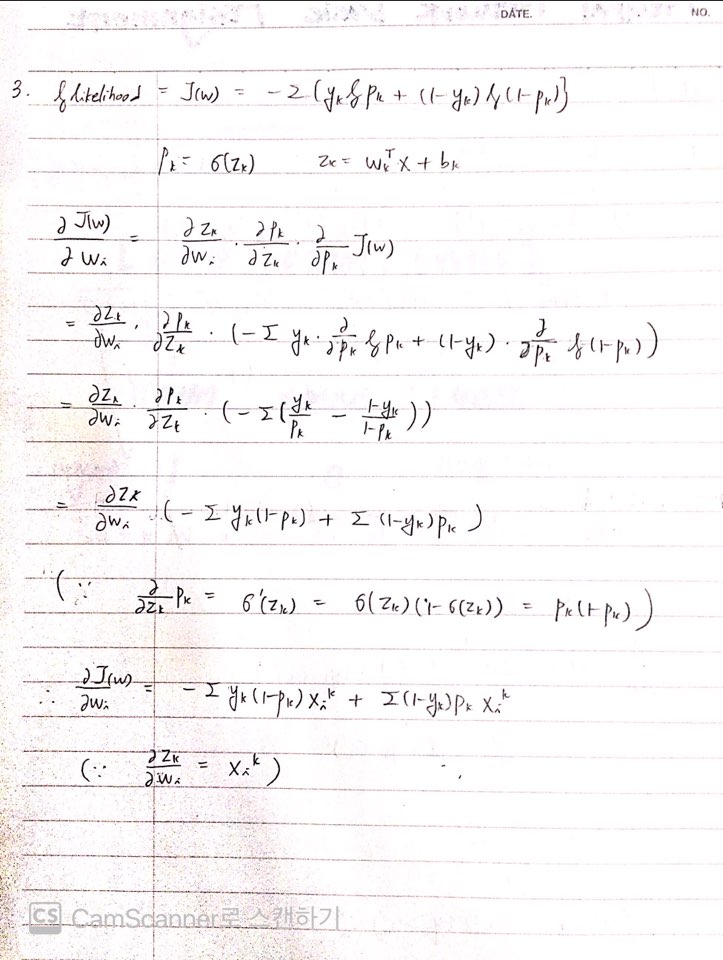 DATE. NO.
3. log likelihood = J(w) = -Σ{yₖ log pₖ + (1-yₖ) log(1-pₖ)}
pₖ = σ(zₖ) zₖ = wₖᵀx + bₖ
∂J(w)/∂wᵢ = ∂zₖ/∂wᵢ · ∂pₖ/∂zₖ · ∂/∂pₖ J(w)
= ∂zₖ/∂wᵢ · ∂pₖ/∂zₖ · (-Σ yₖ · ∂/∂pₖ log pₖ + (1-yₖ) · ∂/∂pₖ log(1-pₖ))
= ∂zₖ/∂wᵢ · ∂pₖ/∂zₖ · (-Σ(yₖ/pₖ - (1-yₖ)/(1-pₖ)))
= ∂zₖ/∂wᵢ · (-Σ yₖ(1-pₖ) + Σ(1-yₖ)pₖ)
(∵ ∂/∂zₖ pₖ = σ'(zₖ) = σ(zₖ)(1-σ(zₖ)) = pₖ(1-pₖ))
∴ ∂J(w)/∂wᵢ = -Σ yₖ(1-pₖ)xᵢᵏ + Σ(1-yₖ)pₖ xᵢᵏ
(∵ ∂zₖ/∂wᵢ = xᵢᵏ)
CS CamScanner로 스캔하기